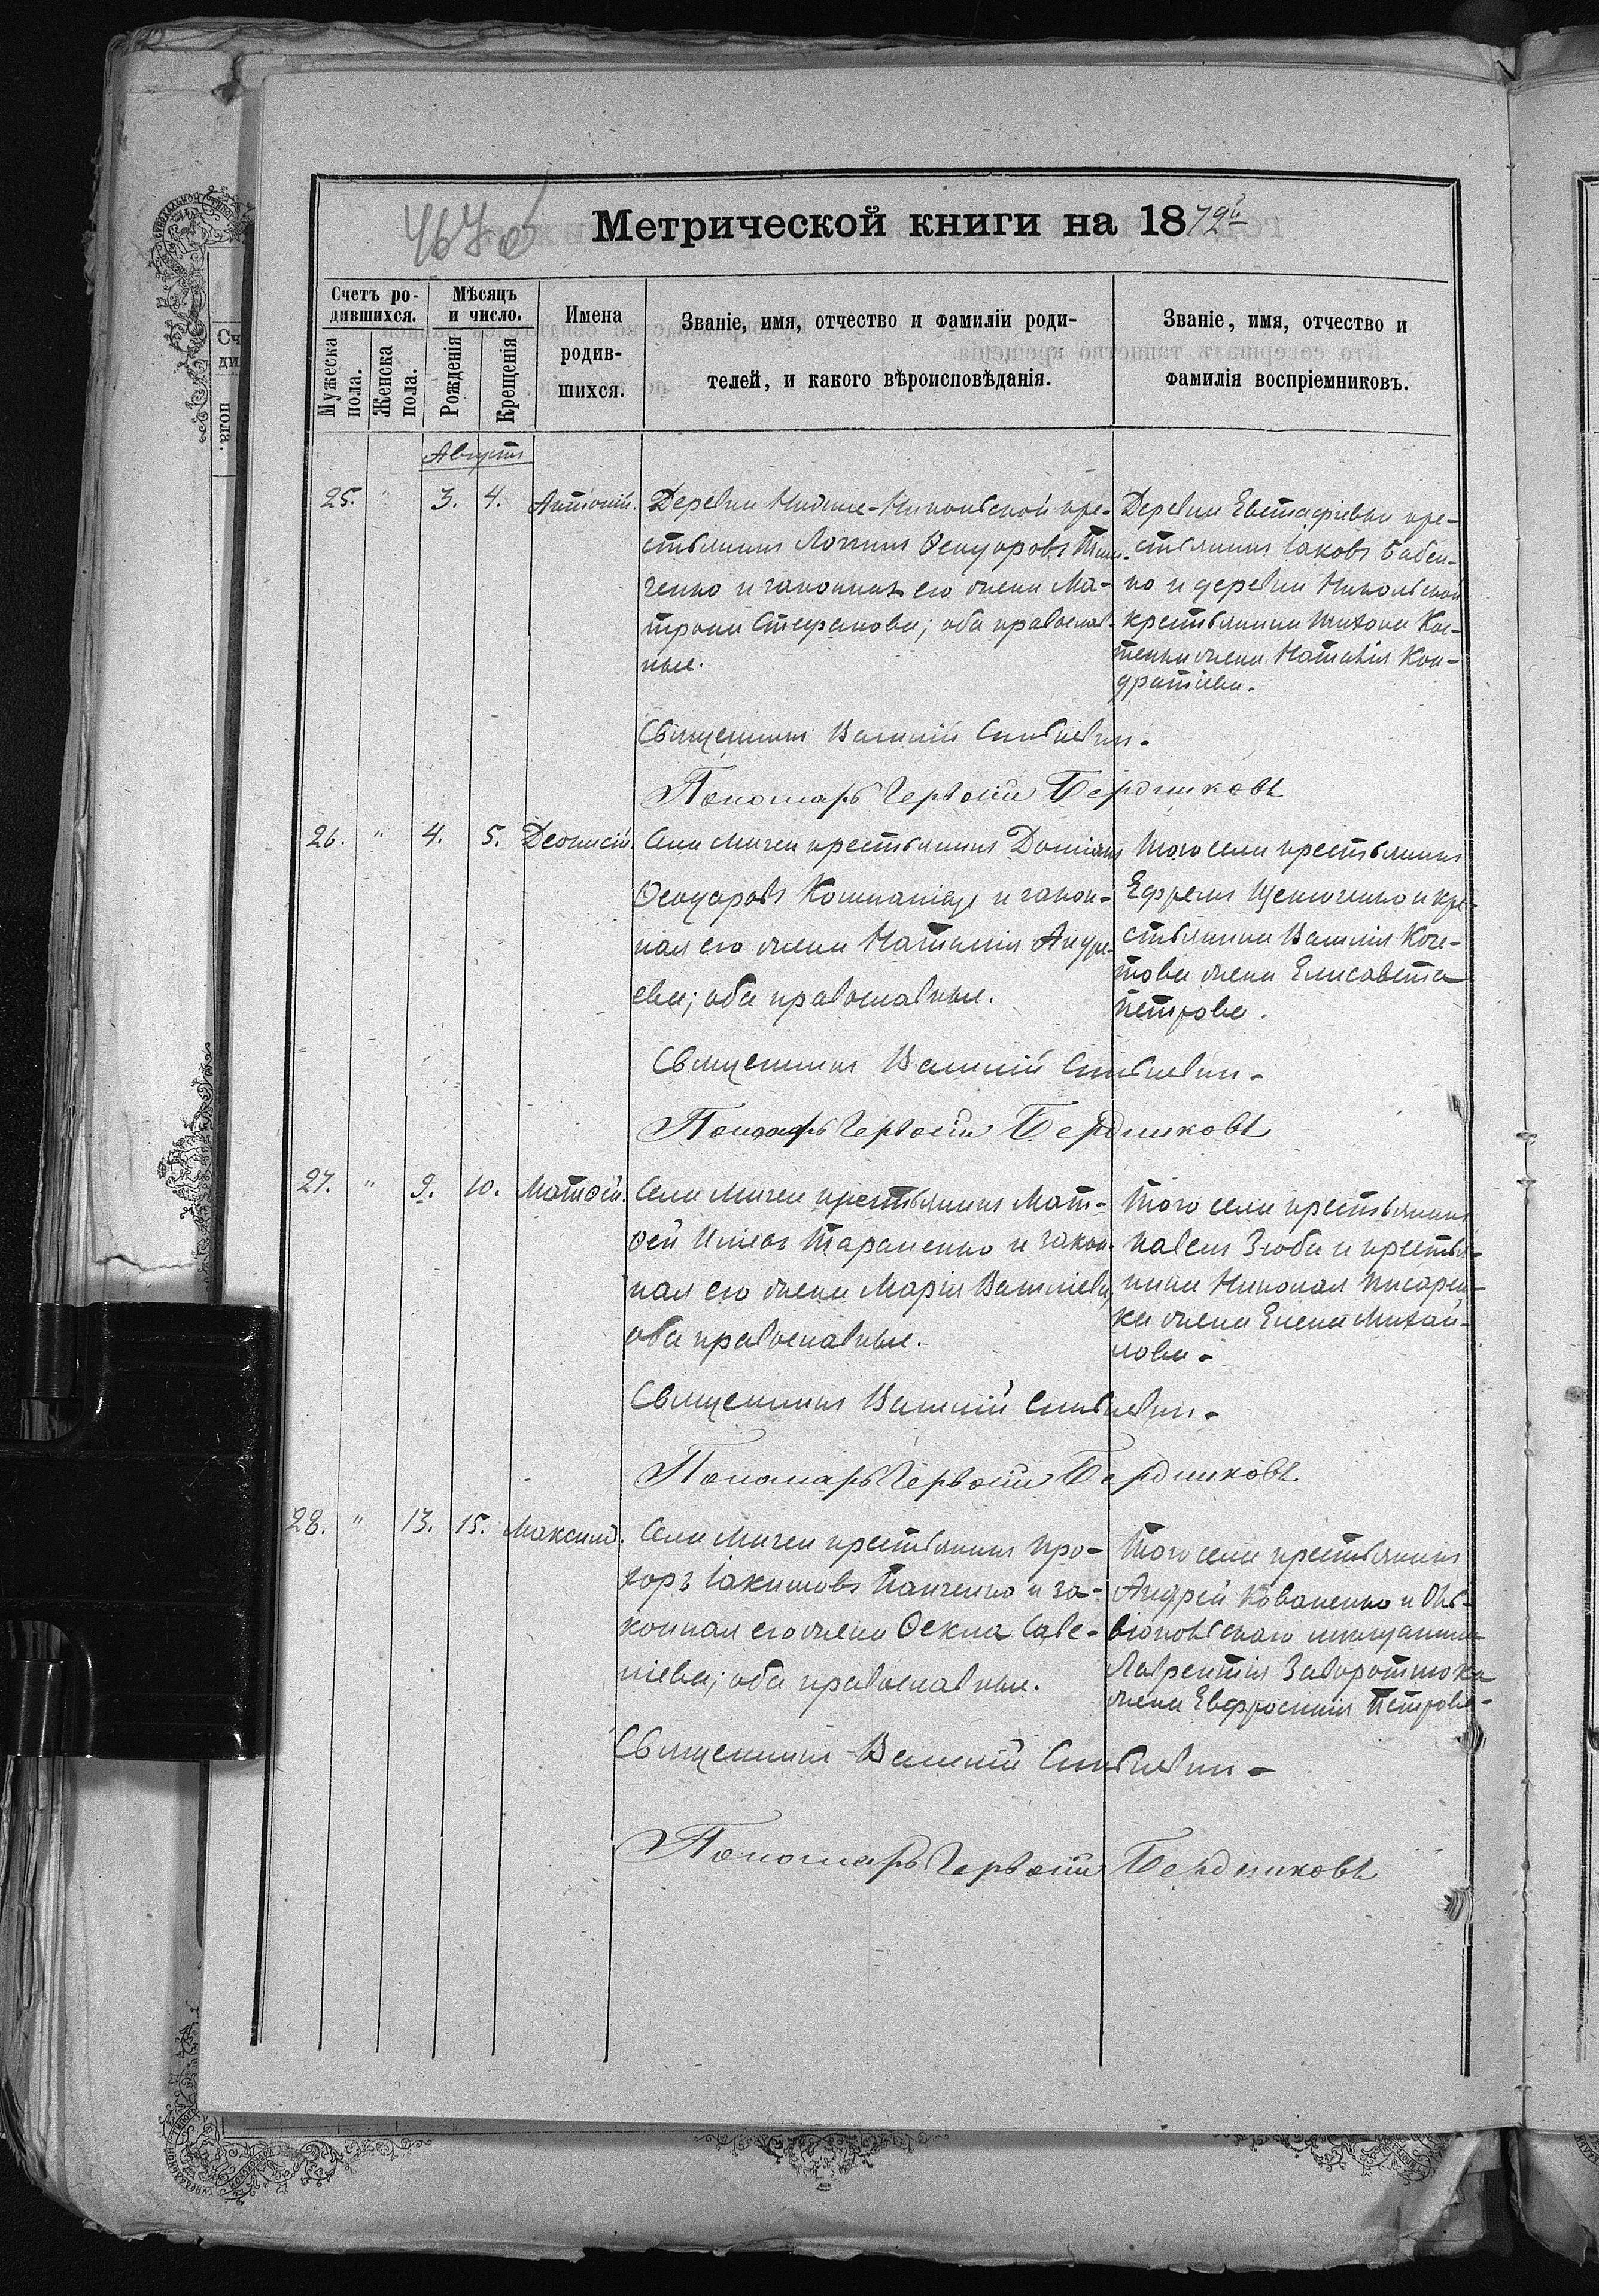 467 об
Метрической книги на 1879й
Счетъ ро-
дившихся.
Мужеска пола.
Женска пола.
Мѣсяцъ
и число.
Рожденія
Крещенія
Имена
родив-
шихся.
Званіе, имя, отчество и фамиліи роди-
телей, и какого вѣроисповѣданія.
Званіе, имя, отчество и
фамилія воспріемниковъ.
Августъ
25. " 3. 4. Антоній.
Деревни Нижне-Никольской кре-
стьянинъ Логгинъ Ѳеодоровъ
ченко и законная его жена Ма-
трона Стефанова; оба православ-
ные.
Деревни Евстафіевки кре-
стьянинъ Іаковъ Бабен-
ко и деревни Никольской
крестьянина Тихона Кос-
тенка жена Наталія Кон-
дратіева.
Священникъ Василій
Пономарь Бердниковъ
26. " 4. 5. Деонисій.
Села крестьянинъ Доміанъ
Ѳеодоровъ Компаніецъ и закон-
ная его жена Наталія Андре-
ева; оба православные.
Того села крестьянинъ
Ефремъ и кре-
стьянина Василія Коче-
това жена Елисавета
Петрова.
Священникъ Василій
Пономарь Бердниковъ
27. " 9. 10. Матѳей.
Села крестьянинъ Мат-
ѳей Тараненко и закон-
ная его жена Марія Василіева,
оба православные.
Того села крестьянинъ
Павелъ Зюба и крестья-
нина Николая Писарен-
ка жена Елена Михай-
лова.
Священникъ Василій
Пономарь Бердниковъ
28. " 13. 15. Максимъ.
Села крестьянинъ Про-
хоръ Іакимовъ Панченко и за-
конная его жена Ѳекла Саве-
ліева; оба православные.
Того села крестьянинъ
Андрей Коваленко и Оль-
віопольскаго мѣщанина
Лаврентія Заворотнюка
жена Евфросинія Петрова.
Священникъ Василій
Пономарь Бердниковъ